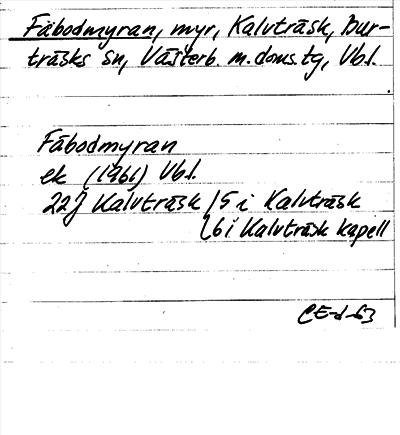 Fäbodmyran, myr, Kalvträsk, Bur-
träsks sn, Västerb. m. doms.tg, Vbl.
Fäbodmyran
ek (1961) Vbl.
22J Kalvträsk /5 i Kalvträsk
6 i Kalvträsk kapell